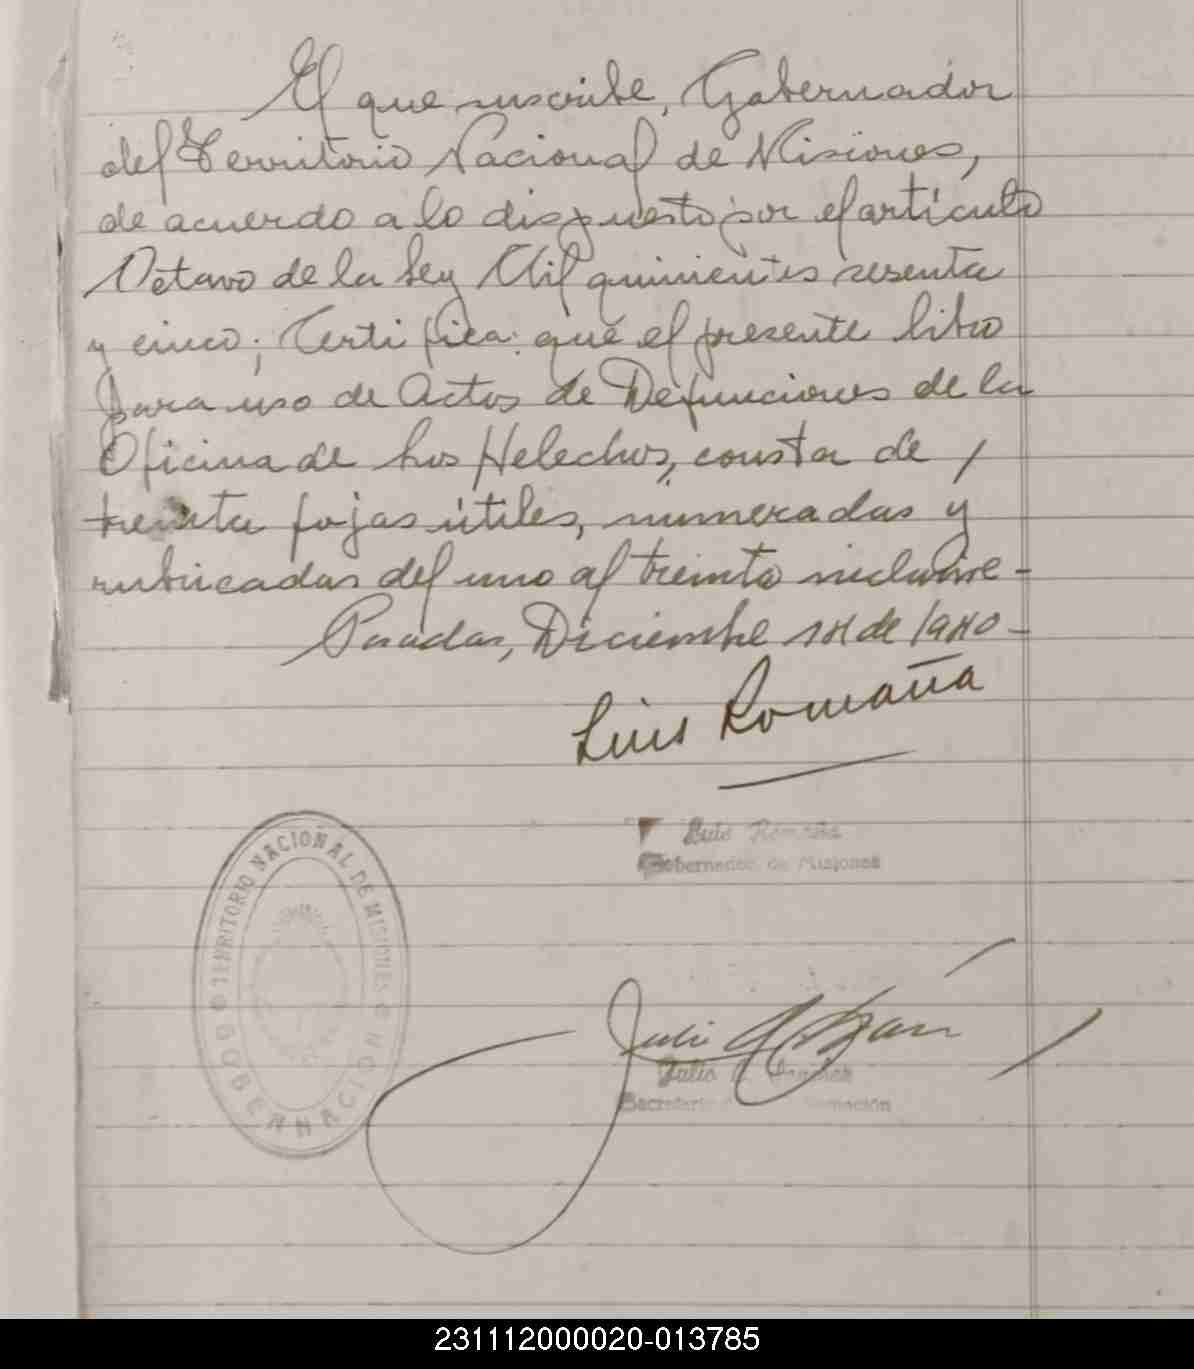 El que suscribe, Gobernador
del Territorio Nacional de Misiones,
de acuerdo a lo dispuesto por el artículo
Octavo de la Ley Mil quinientos sesenta
y cinco; Certifica: que el presente libro
para uso de Actos de Defunciones de la
Oficina de Los Helechos, consta de
treinta fojas útiles, numeradas y
rubricadas del uno al treinta inclusive-
Posadas, Diciembre 14 de 1940-
Luis Romaña
Luis Romaña
Gobernador de Misiones
GOBERNACION TERRITORIO NACIONAL DE MISIONES
Julio
Julio
Secretario
231112000020-013785